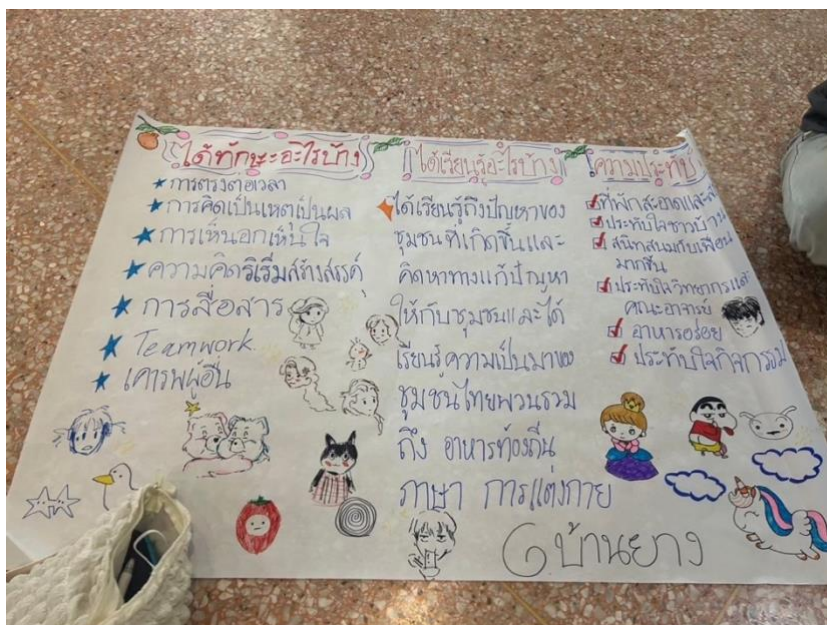 ได้ทักษะอะไรบ้าง
การตรงต่อเวลา
การคิดเป็นเหตุเป็นผล
การเห็นอกเห็นใจ
ความคิดริเริ่มสร้างสรรค์
การสื่อสาร
Teamwork
เคารพผู้อื่น
ได้เรียนรู้อะไรบ้าง
ได้เรียนรู้ถึงปัญหาของ
ชุมชนที่เกิดขึ้นและ
คิดหาทางแก้ปัญหา
ให้กับชุมชนและได้
เรียนรู้ความเป็นมาของ
ชุมชนไทยพวนรวม
ถึง อาหารท้องถิ่น
ภาษา การแต่งกาย
ความประทับ
ที่พักสะอาดและ
ประทับใจชาวบ้าน
สนิทสนมกับเพื่อน
มากขึ้น
ประทับใจวิทยากรและ
คณะอาจารย์
อาหารอร่อย
ประทับใจกิจกรรม
บ้านยาง